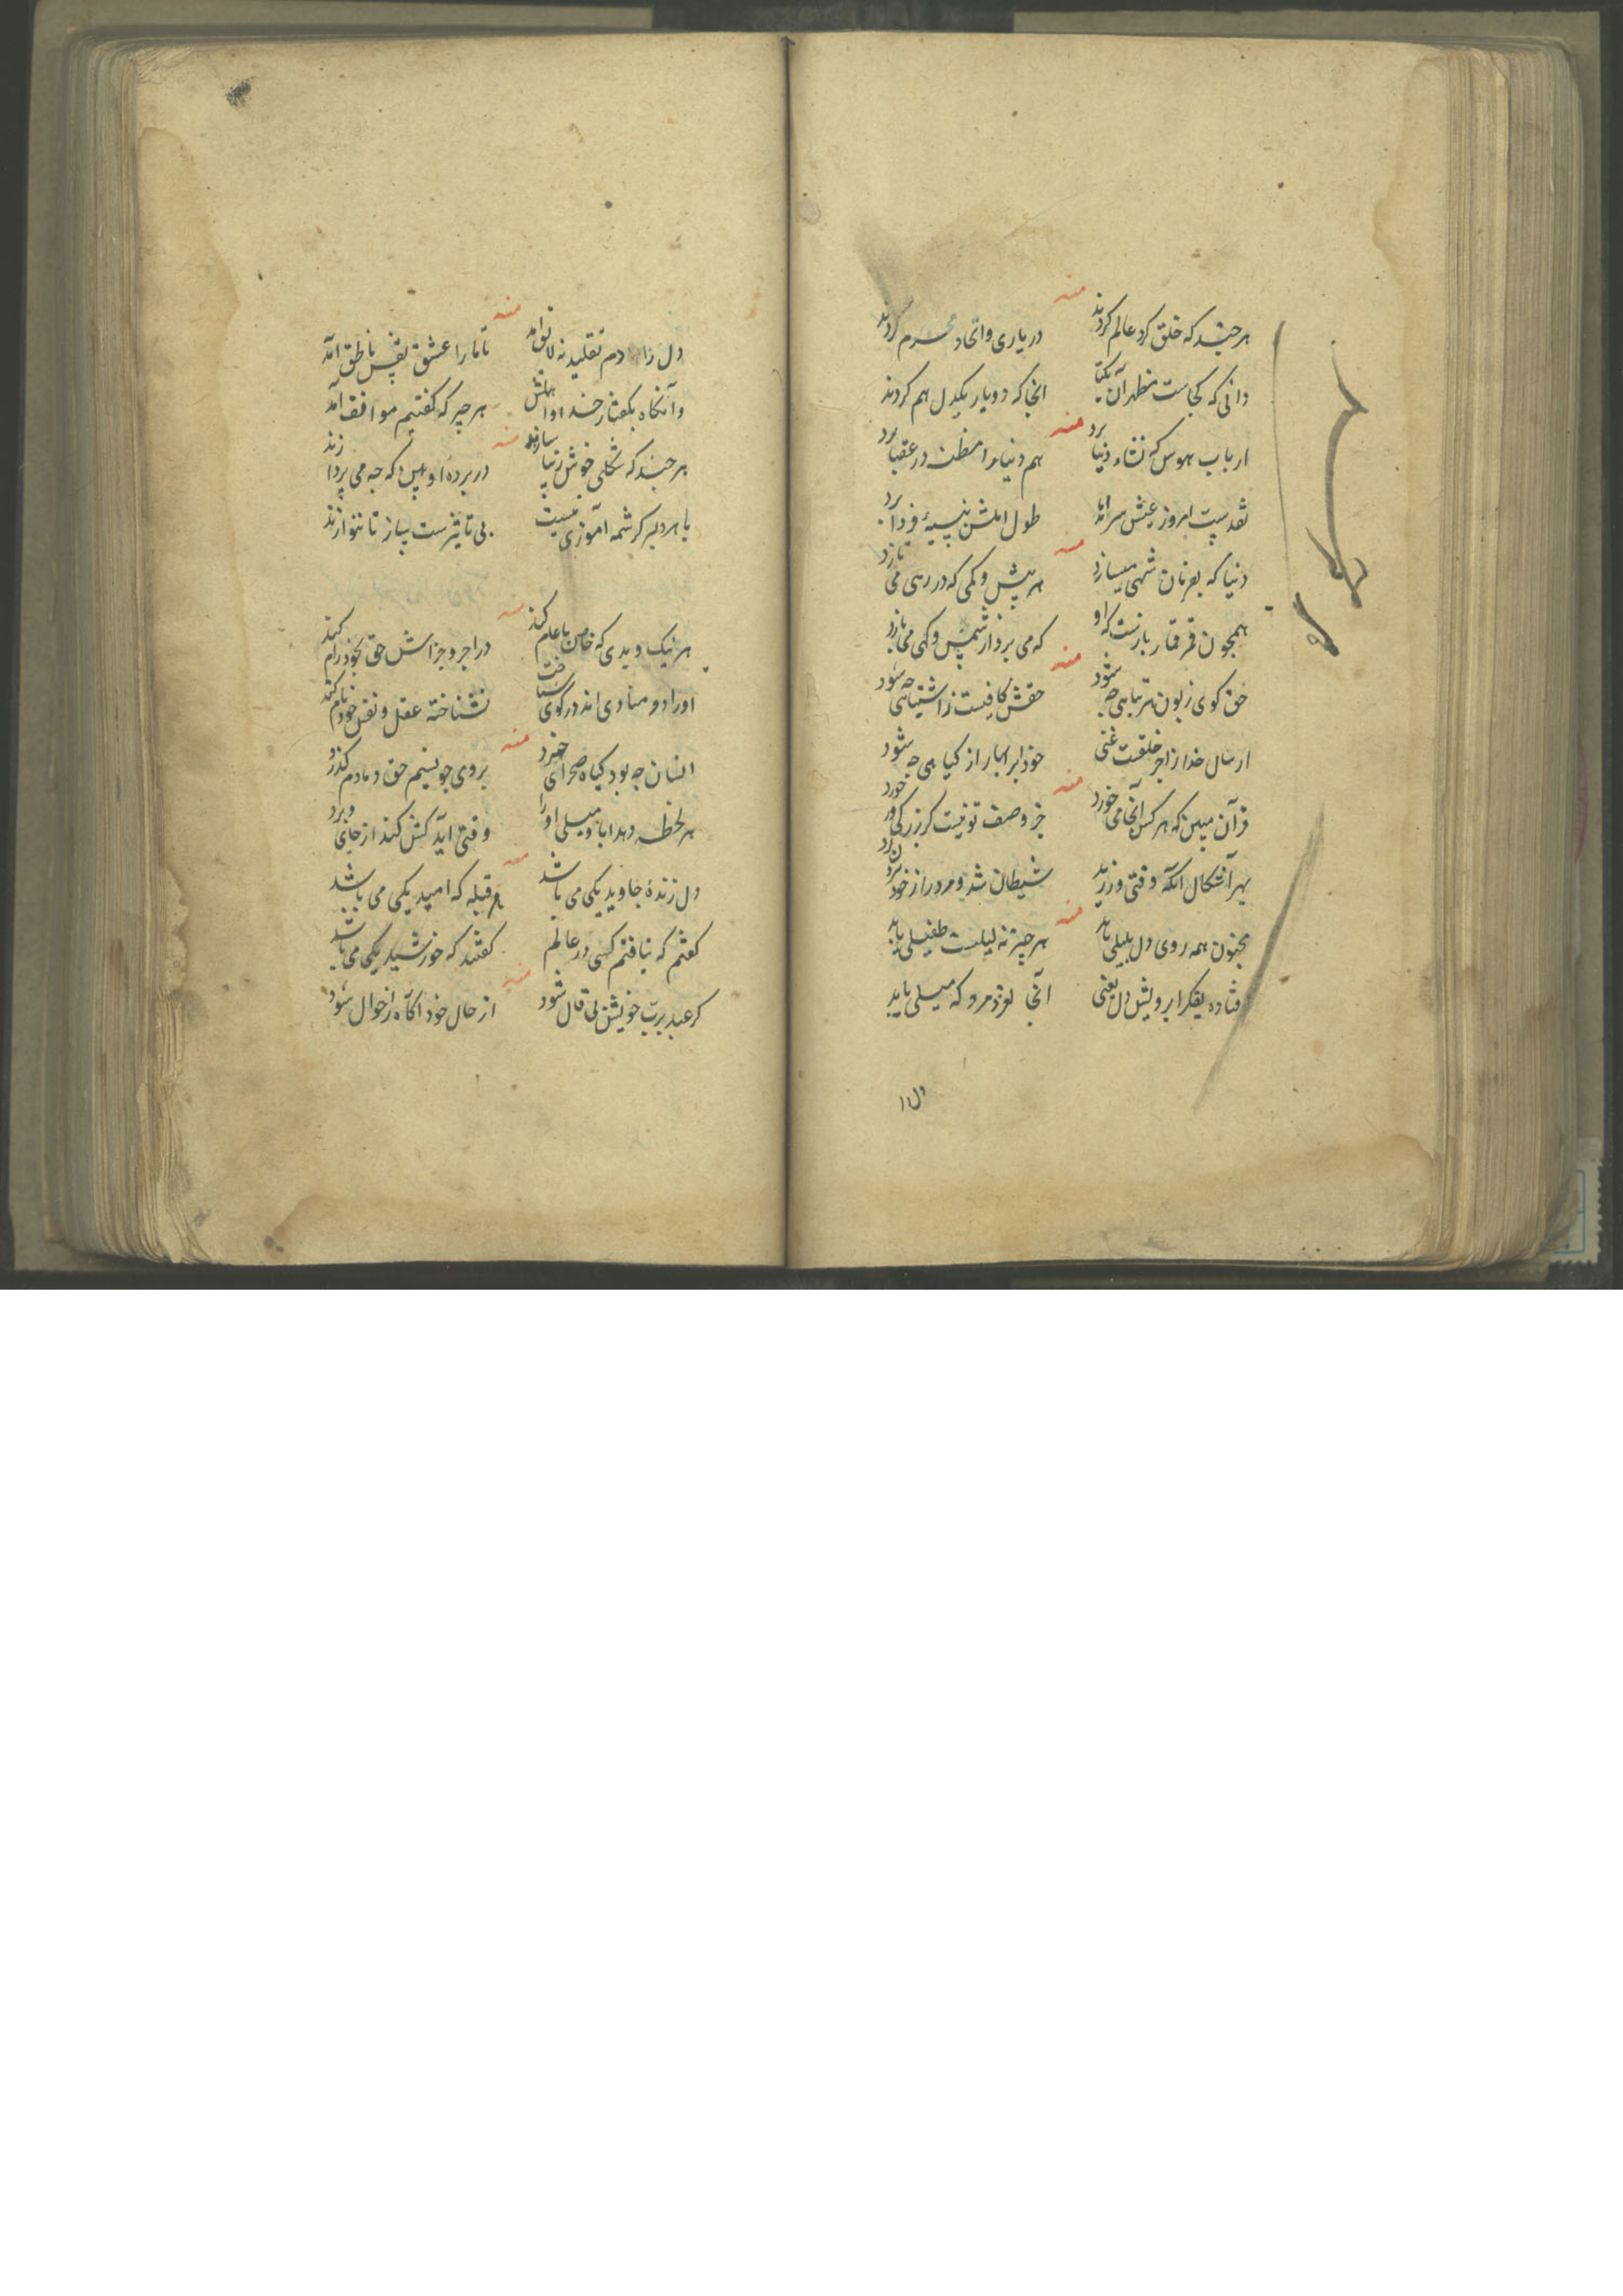 منه
هر چند که خلق کرد عالم کردند در یاری و اتحاد محرم کردند
دانی که کجاست مظهر آن یکتا انجا که دو یار یکدل هم کردند
منه
ارباب هوس که نشاء دنیا برد هم دنیا را مظنت در عقبا برد
نقدیست امروز عیش سر امد طول املش بنسیۀ فردا برد
منه
دنیا که بعرنان شهی میسازد هر بیش و کمی که در رهی می تازد
همچون قمر قمار بازست که او که می برد از شمس و کهی می بازد
منه
حق کوی زبون هر تباهی چه شود حقش کافیست ز اشتباهی چه شود
ارسال خدا ز اجر خلقت غنی خود ابر بهار از کیاهی چه شود
منه
قرآن مبین که هر کس آنجا می خورد جز وصف تو نیست کر بزرکی ور خورد
بهر آشکال انکه وقتی ورزید شیطان شد و مرد را ز خود
منه
مجنون همه روی دل بلیلی باید هر چیز نه لیلیست طفیلی باید
فتاده بفکر ابرویش دل یعنی آنجا نرود مرو که میلی باید
دل را
منه
دل را دم تقلید نه لایق آمد تا ما را عشق نفس ناطق آمد
وآنکاه بکفتار خدا و اهلش هر چیز که کفتیم موافق آمد
منه
هر چند که شکلی خوش زیبا سازند در پردۀ او ببین که چه می پردازند
با هر دلبر کرشمه آموزی نیست بی تاثیرست ساز تا ننوازند
منه
هر نیک و بدی که خاص با عام کند در اجر و جزاش حق بخود رام کند
او را دو منادی اند در کوی شناخت نشناخته عقل و نفس خود نام کند
منه
انسان چه بود کیاه صحرای خرد بر وی چو نسیم حق دمادم کذرد
هر لحظه دهد ابا و میلی او را وقتی اید کش کند از جای و برد
منه
دل زندۀ جاوید یکی می باشد هر قبله که امید یکی می باشد
کفتم که نیافتم کسی در عالم کفتند که خورشید یکی می باشد
منه
کر عبد برب خویش بی قال شود از حال خود آکاه ز احوال شود